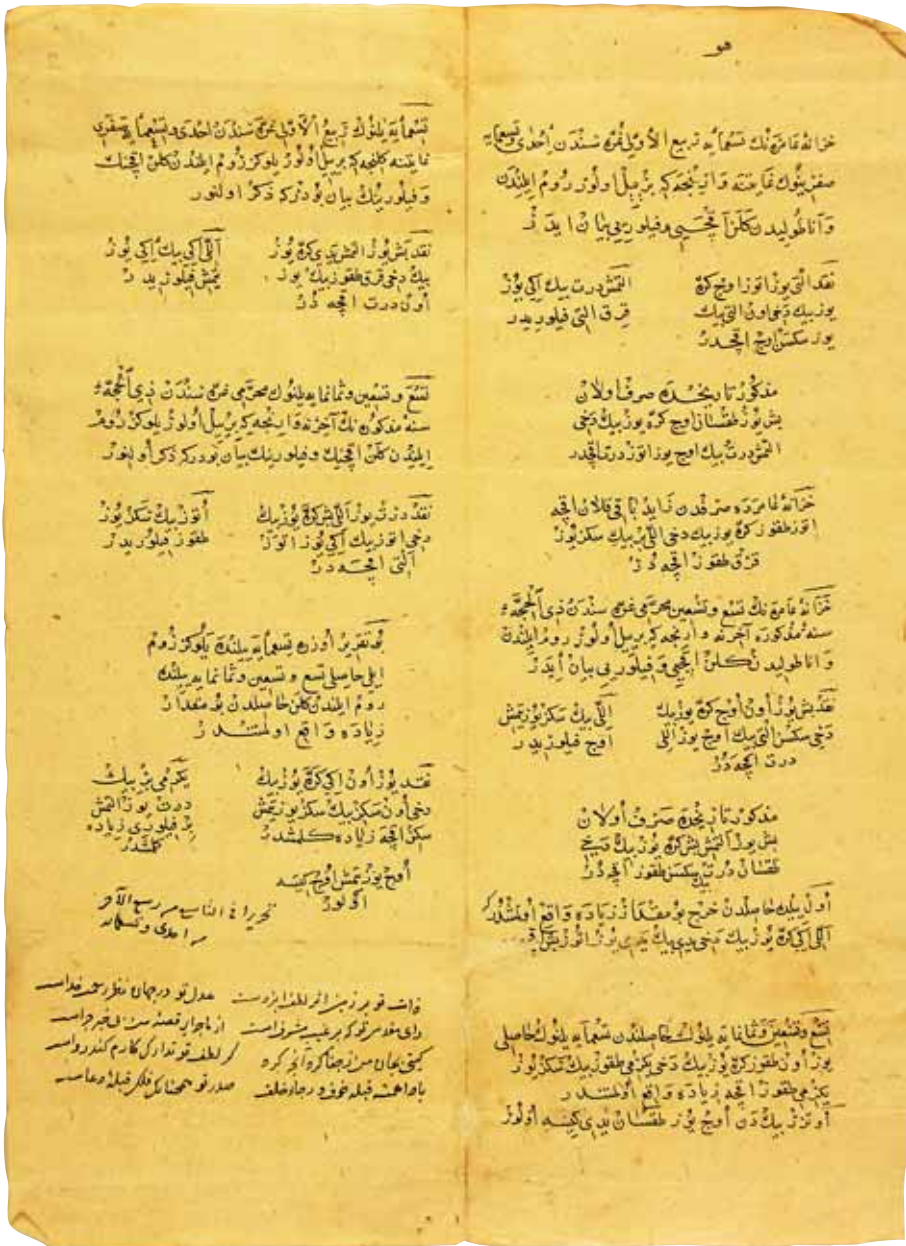 هو
خزانهٔ عامره‌نك تسعمایه ربیع الاولی غره سندن احدی و تسعمایه
صفرینوك نهایتنه وارنجه که بر ییل اولور روم ایلندن
و آناطولیدن کلن آقچه‌یی و فیلوری بی بیان ایدر
نقد التی یوز اوتوز اوچ کره
یوز بیك دخی اون التی بیك
یوز سکسن اوچ اقچه‌در
التمش درت بیك ایکی یوز
قرق التی فیلوریدر
مذکور تاریخده صرف اولان
بش یوز طقسان اوچ کره یوز بیك دخی
التمش درت بیك اوچ یوز اوتوز درت اقچه‌در
خزانهٔ عامرده صرفدن زاید باقی قلان اقچه
اوتوز طقوز کره یوز بیك دخی اللی بر بیك سکز یوز
قرق طقوز اقچه در
خزانهٔ عامره‌نك تسع و تسعین محرمی غره سندن ذی الحجه
سنهٔ مذکوره آخرنه وارنجه که بر ییل اولور روم ایلندن
و اناطولیدن کلن اقچه‌یی و فیلوری بی بیان ایدر
نقد بش یوز اون اوچ کره یوز بیك
دخی سکسن التی بیك اوچ یوز اللی
درت اقچه در
اللی بیك سکز یوز یتمش
اوچ فیلوریدر
مذکور تاریخده صرف اولان
بش یوز التمش بش کره یوز بیك دخی
طقسان درت بیك سکسن طقوز اقچه در
اول ییلك حاصلدن خرج بو مقدار زیاده واقع اولمشدر که
اللی ایکی کره یوز بیك دخی یدی بیك یدی یوز اوتوز بش اقچه
تسع و تسعین و ثمانمایه ییلونك حاصلندن تسعمایه ییلونك حاصلی
یوز اون طقوز کره یوز بیك دخی یکرمی طقوز بیك سکز یوز
یکرمی طقوز اقچه زیاده واقع اولمشدر
اوتوز بیك دن اوچ یوز طقسان یدی کیسه اولور
تسعمایه ییلونك ربیع الاولی غره سندن احدی و تسعمایه صفری
نهایتنه کلنجه که بر ییل اولور یلوکز روم ایلندن کلن اقچنك
و فیلورینك بیان بودر که ذکر اولنور
نقد بش یوز التمش یدی کره یوز
بیك دخی قرق طقوز بیك یوز
اون درت اقچه در
اللی ایکی بیك ایکی یوز
یتمش فیلوریدر
تسع و تسعین و ثمانمایه ییلونك محرمی غره سندن ذی الحجه
سنه مذکوره‌نك آخرنه وارنجه که بر ییل اولور یلوکز روم
ایلیدن کلن اقچنك و فیلورینك بیان بودر که ذکر اولنور
نقد درت یوز اللی بش کره یوز بیك
دخی اوتوز بیك ایکی یوز اوتوز
التی اقچه در
اوتوز بیك سکز یوز
طقوز فیلوریدر
بو تقریر اوزره تسعمایه ییلنده یلوکز روم
ایلی حاصلی تسع و تسعین و ثمانمایه ییلنده
روم ایلندن کلن حاصلدن بو مقدار
زیاده واقع اولمشدر
نقد یوز اون ایکی کره یوز بیك
دخی اون سکز بیك سکز یوز یتمش
سکز اقچه زیاده کلمشدر
یکرمی بر بیك
درت یوز التمش
بر فیلوری زیاده
کلمشدر
اوچ یوز یتمش اوچ کیسه
اولور
تحریرا فی من ربیع الآخر
احدی و تسعمائه
ذات تو بر زمین اثر لطف ایزدست
عدل تو در جهان
رای مقدس تو که بر غیب مشرفست
از ماجرای قصهٔ من